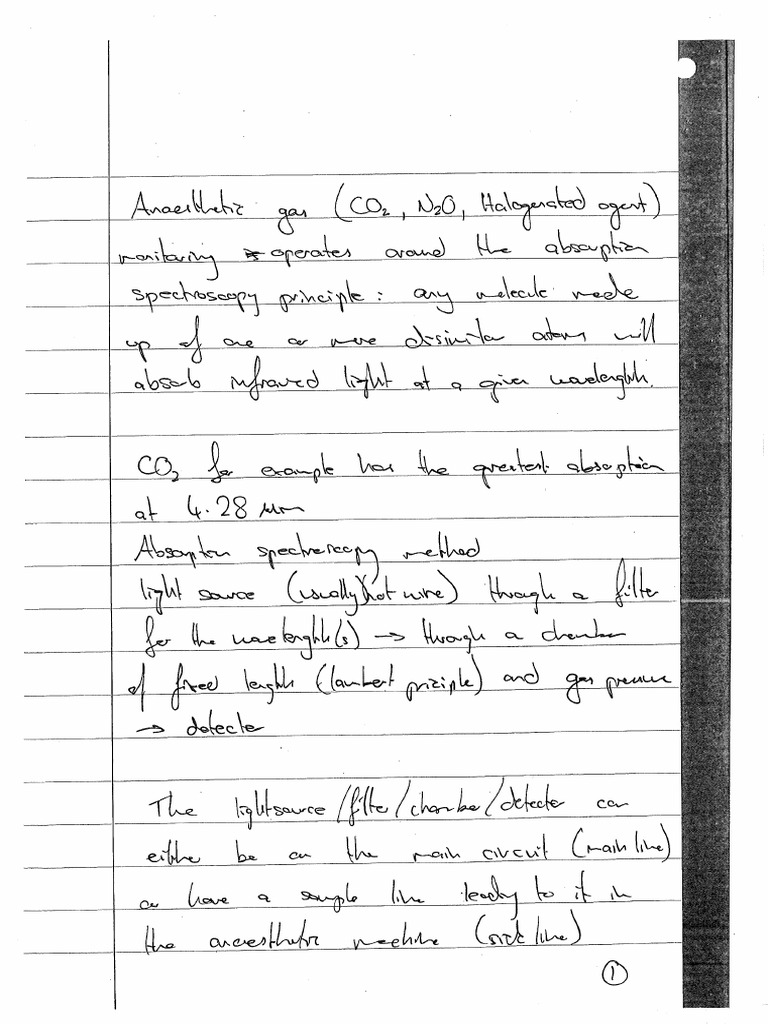 Anaesthetic gas (CO₂, N₂O, Halogenated agent)
monitoring operates around the absorption
spectroscopy principle: any molecule made
up of one or more dissimilar atoms will
absorb infrared light at a given wavelength.
CO₂ for example has the greatest absorption
at 4.28 μm
Absorption spectroscopy method
light source (usually hot wire) through a filter
for the wavelength(s) → through a chamber
of fixed length (lambert priciple) and gas pressure
→ detecter
The lightsource/filter/chamber/detecter can
either be on the main circuit (main line)
or have a sample line leading to it in
the anaesthetic machine (side line)
1